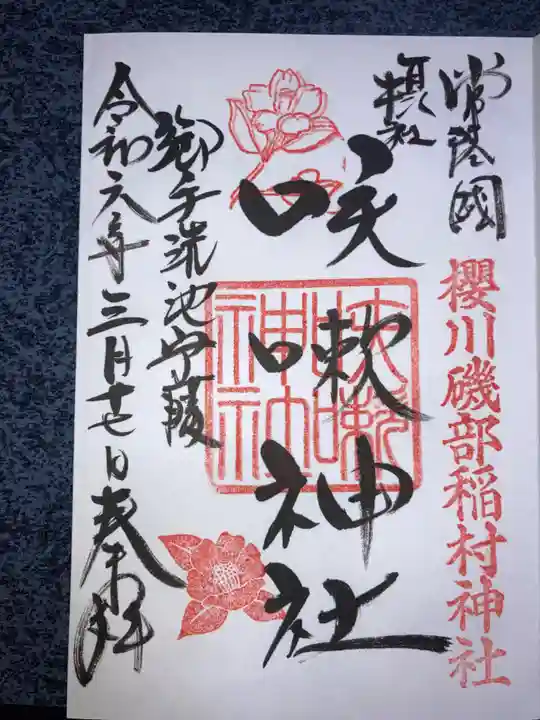 常陸國
櫻川磯部稲村神社
摂社
咳嗽神社
咳嗽神社
御手洗池守護
令和元年三月十七日奉拝